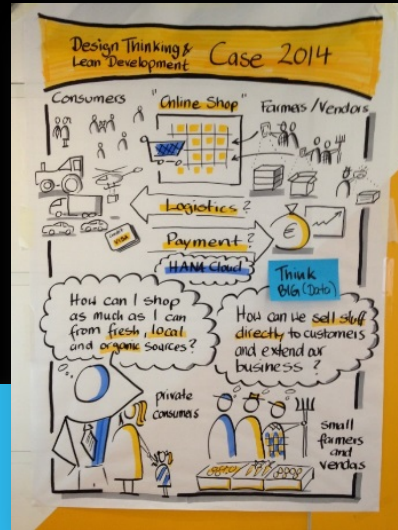 Design Thinking &
Lean Development
Case 2014
Consumers
"Online Shop"
Farmers/Vendors
Logistics?
VISA
Payment?
€
HANA Cloud
Think
BIG (Data)
How can I shop
as much as I can
from fresh, local
and organic sources?
How can we sell stuff
directly to customers
and extend our
business?
private
consumers
small
farmers
and
vendas